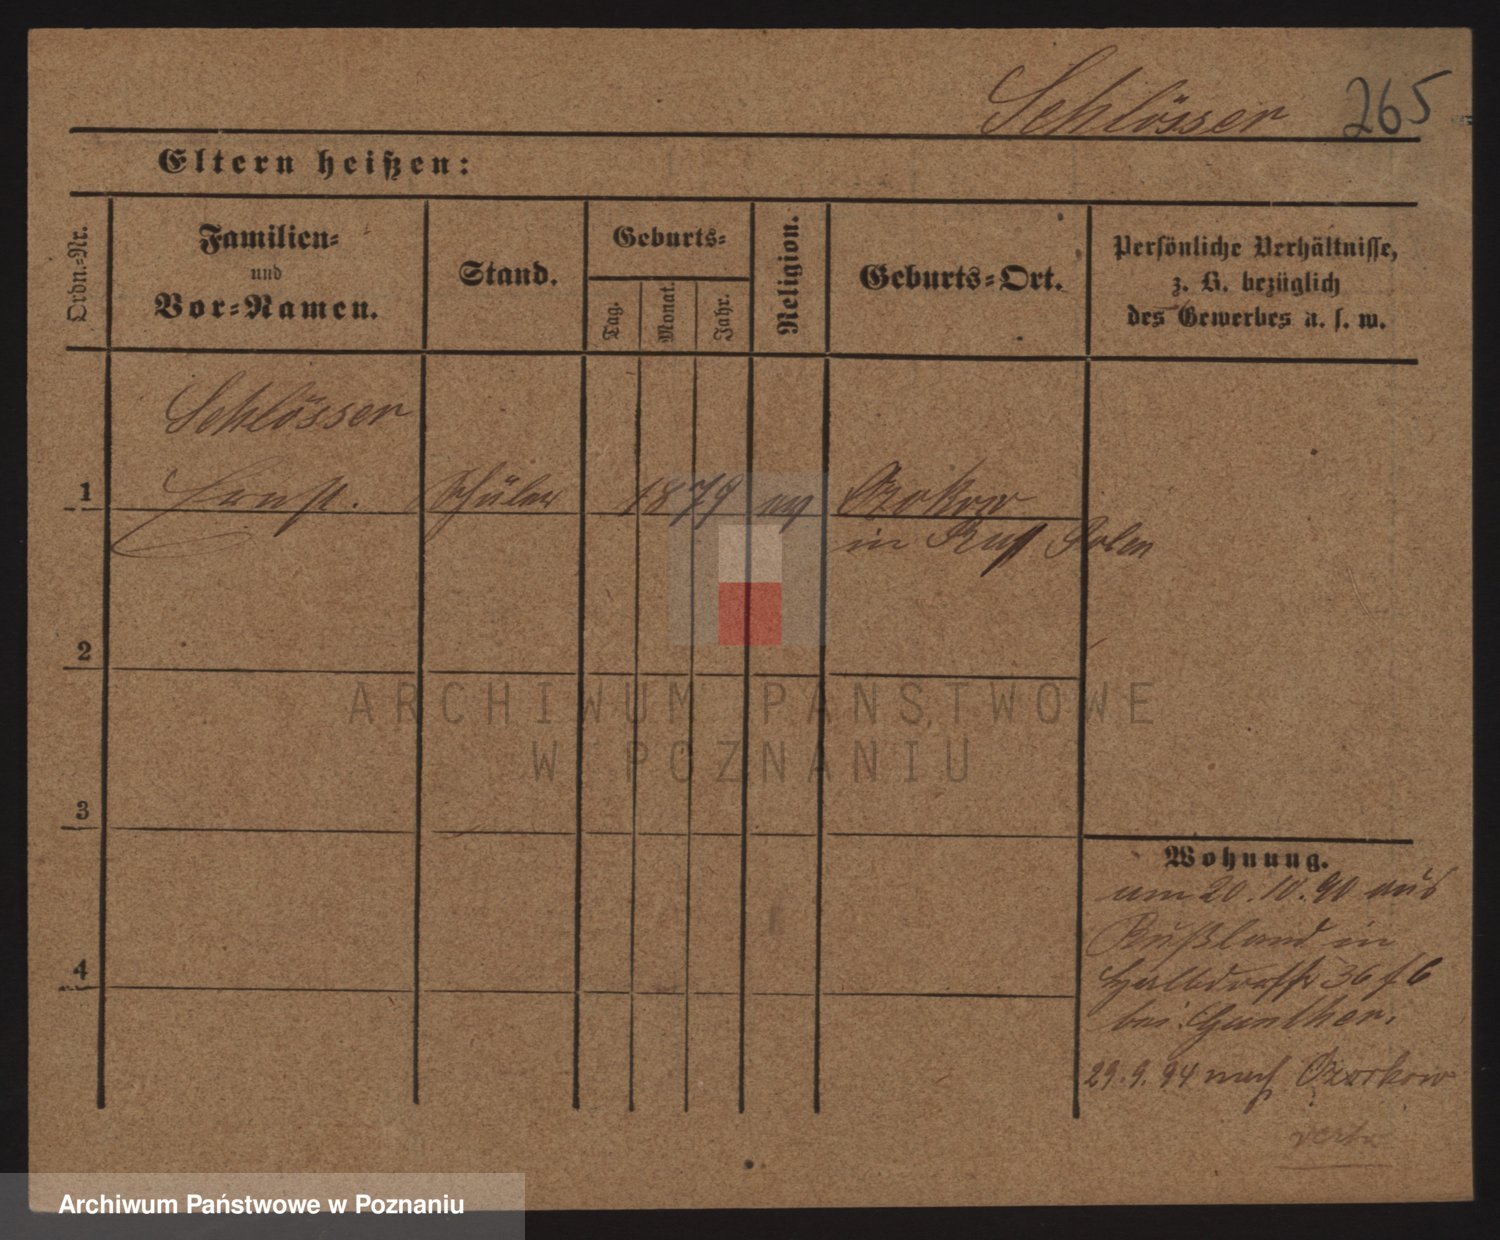 Schlösser 265
Eltern heißen:
Ordn.-Nr.
Familien-
und
Vor-Namen.
Stand.
Geburts-
Tag.
Monat.
Jahr.
Religion.
Geburts-Ort.
Persönliche Verhältnisse,
z. B. bezüglich
des Gewerbes u. s. w.
Schlösser
1 Ernst. Schüler 1879 ev Ozokow
in Russ Polen
2
3
4
ARCHIWUM PAŃSTWOWE
W POZNANIU
Wohnung.
um 20.10.90 aus
Rußland in
Halbdorfstr 36 f. 6
bei Gunther.
29.9.94 nach Ozorkow
Archiwum Państwowe w Poznaniu